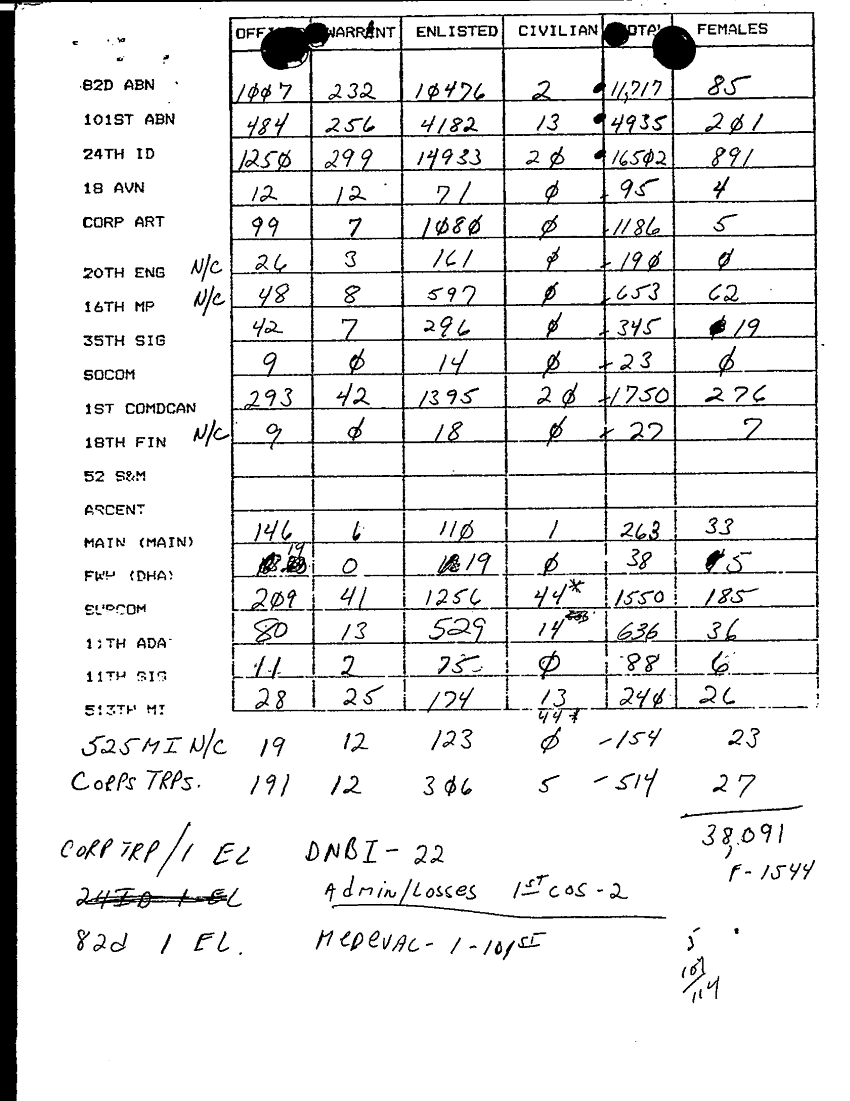 WARRANT ENLISTED CIVILIAN FEMALES
82D ABN 1007 232 10476 2 11,717 85
101ST ABN 484 256 4182 13 4935 201
24TH ID 1250 299 14933 20 16502 891
18 AVN 12 12 71 0 95 4
CORP ART 99 7 1080 0 1186 5
20TH ENG N/C 26 3 161 0 190 0
16TH MP N/C 48 8 597 0 653 62
35TH SIG 42 7 296 0 345 19
SOCOM 9 0 14 0 23 0
1ST COMDCAN 293 42 1395 20 1750 276
18TH FIN N/C 9 0 18 0 27 7
52 S&M
ARCENT
MAIN (MAIN) 146 6 110 1 263 33
FWD (DHA) 19 0 19 0 38 5
SUPCOM 209 41 1256 44* 1550 185
11TH ADA 80 13 529 14 636 36
11TH SIG 11 2 75 0 88 6
513TH MI 28 25 174 13 240 26
44*
525 MI N/C 19 12 123 0 -154 23
CORPS TRPS. 191 12 306 5 -514 27
38,091
F-1544
CORP TRP/1 EL DNBI-22
24 ID 1 EL Admin/Losses 1ST COS-2
82d 1 EL. MEDEVAC-1-101ST
5
114